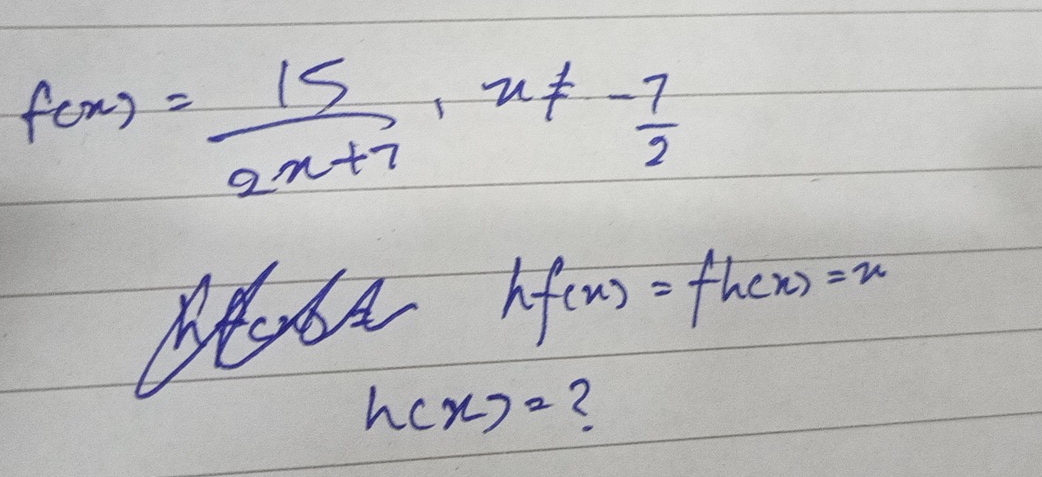 f(x) = 15/(2x+7), x ≠ -7/2
hf(x) = fh(x) = x
h(x) = ?